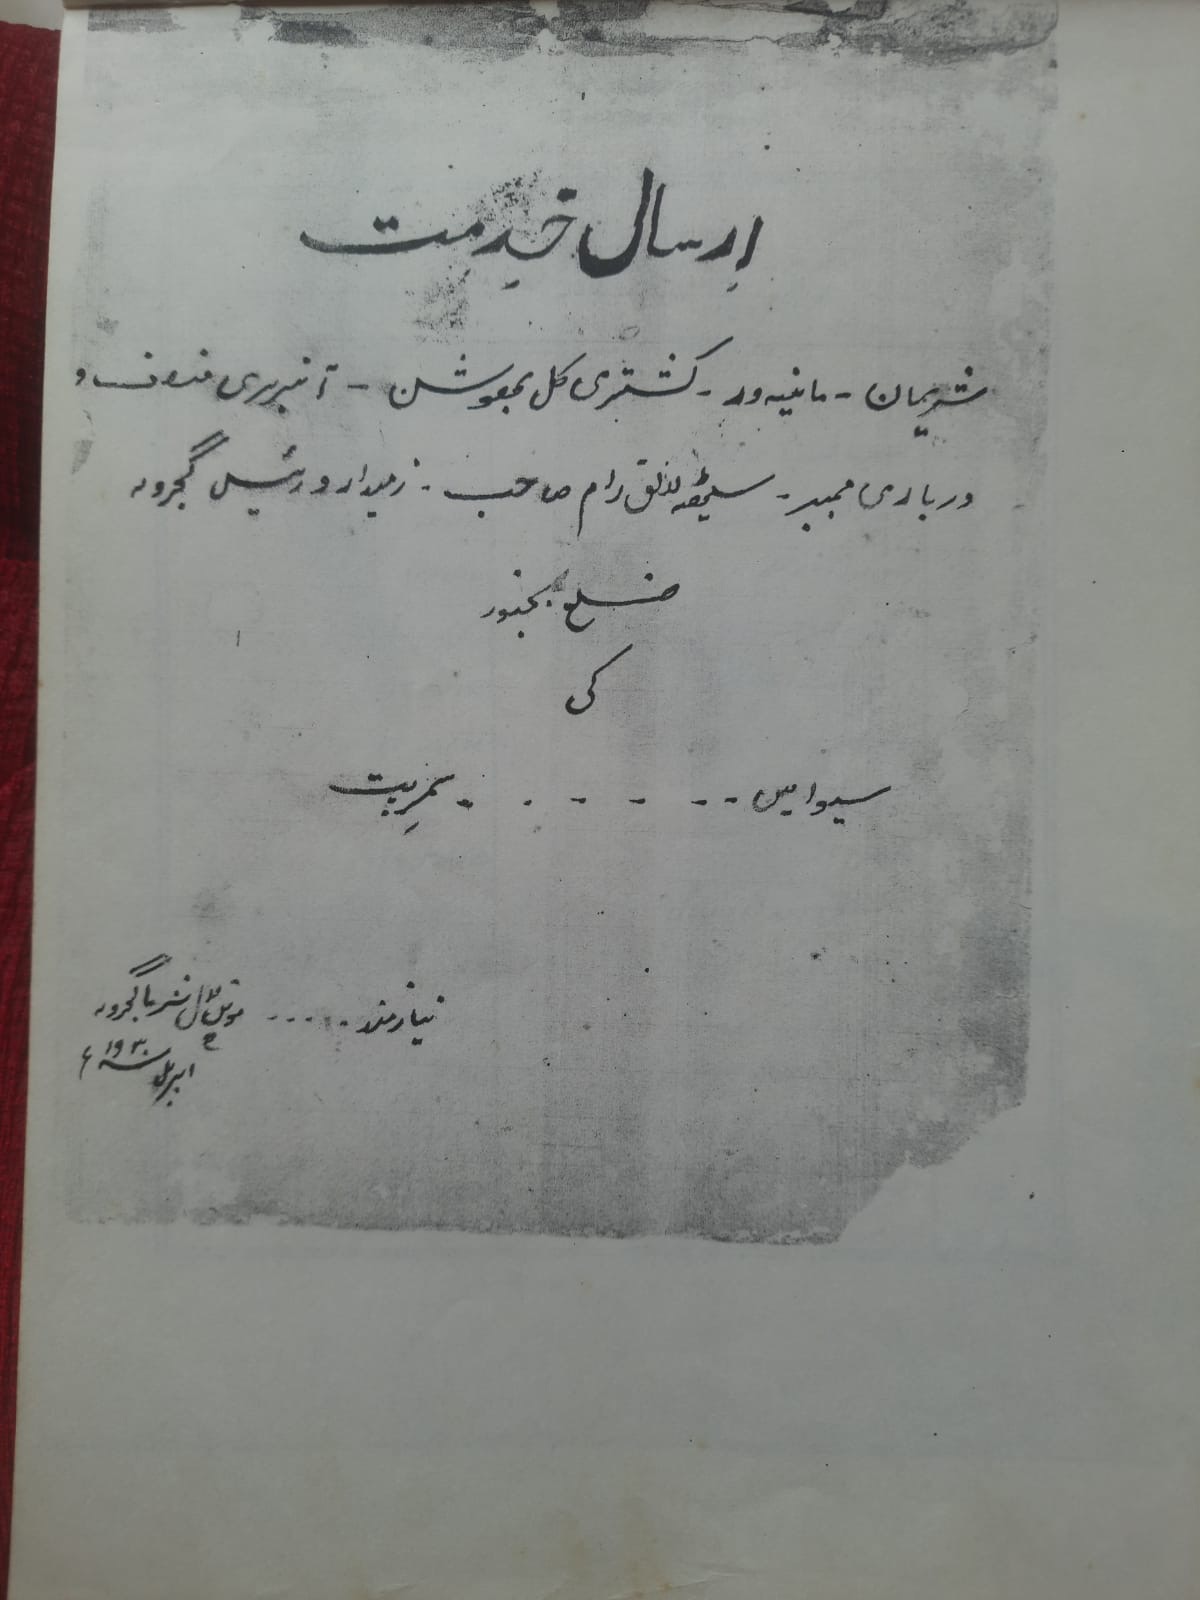 ارسال خدمت
شریمان - مانیہ ور - کشتری کل بھوشن - آنریری منصف و
درباری ممبر - سیٹھ رام صاحب - زمیندار و رئیس گجرولہ
ضلع بجنور
کی
سیوا میں - - - - - - سمرپت
نیازمند ..... شرما گجرولہ
اپریل سنہ ۱۹۳۰ء